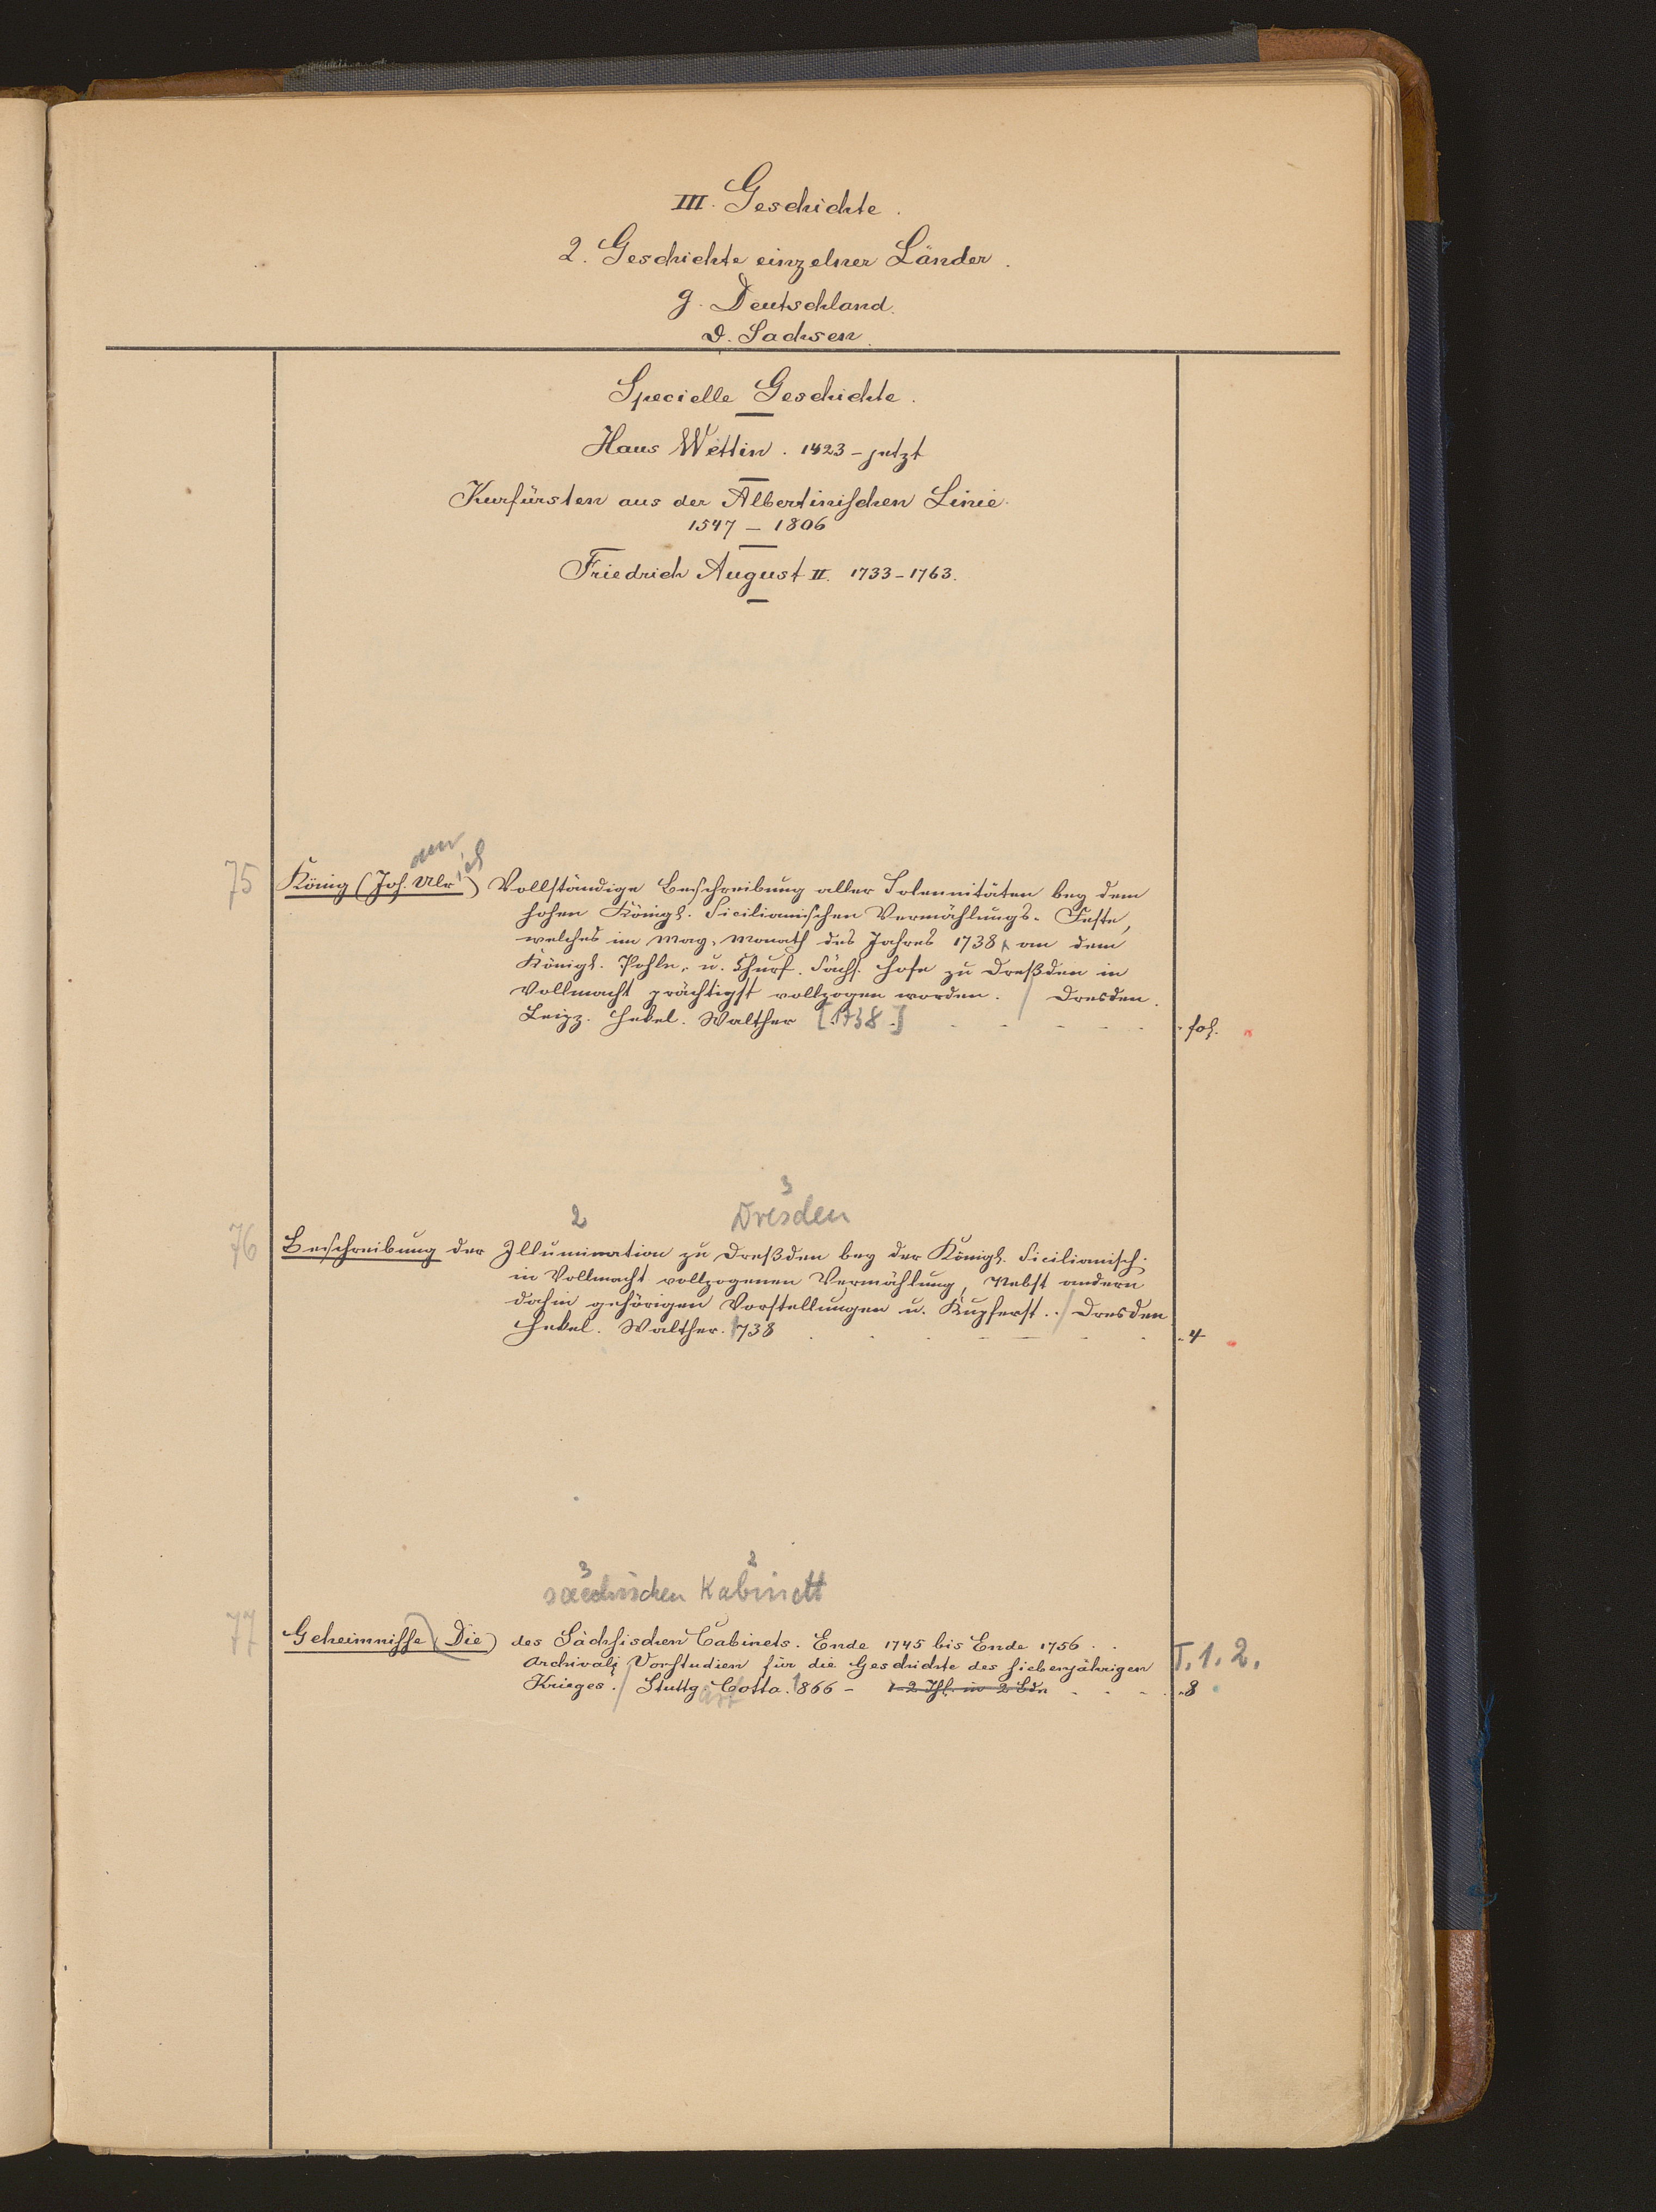 III. Geschichte.
2. Geschichte einzelner Länder.
g. Deutschland.
d. Sachsen.
Specielle Geschichte.
Haus Wettin. 1423 - jetzt
Kurfürsten aus der Albertinischen Linie.
1547 - 1806
Friedrich August II. 1733-1763.
75 König (Joh. Ulrich) Vollständige Beschreibung aller Solennitäten bey dem
hohen Königl. Sicilianischen Vermählungs-Feste,
welches im May-Monath des Jahres 1738 an dem
Königl. Pohln. u. Churf. Sächs. Hofe zu Dreßden in
Vollmacht prächtigst vollzogen worden. / Dresden.
Leipz. Hekel. Walther [1738.] fol.
2 3
Dresden
76 Beschreibung der Illumination zu Dreßden bey der Königl. Sicilianisch.
in Vollmacht vollzogenen Vermählung, Nebst andern
dahin gehörigen Vorstellungen u. Kupferst. / Dresden
Hekel. Walther. 1738 4
3 2
saechsischen Kabinett
77 Geheimnisse (Die) des Sächsischen Cabinets. Ende 1745 bis Ende 1756.
Archival. Vorstudien für die Geschichte des siebenjährigen T. 1. 2.
Krieges. / Stuttgart Cotta. 1866 - 1-2 Thl. in 2 Bdn 8